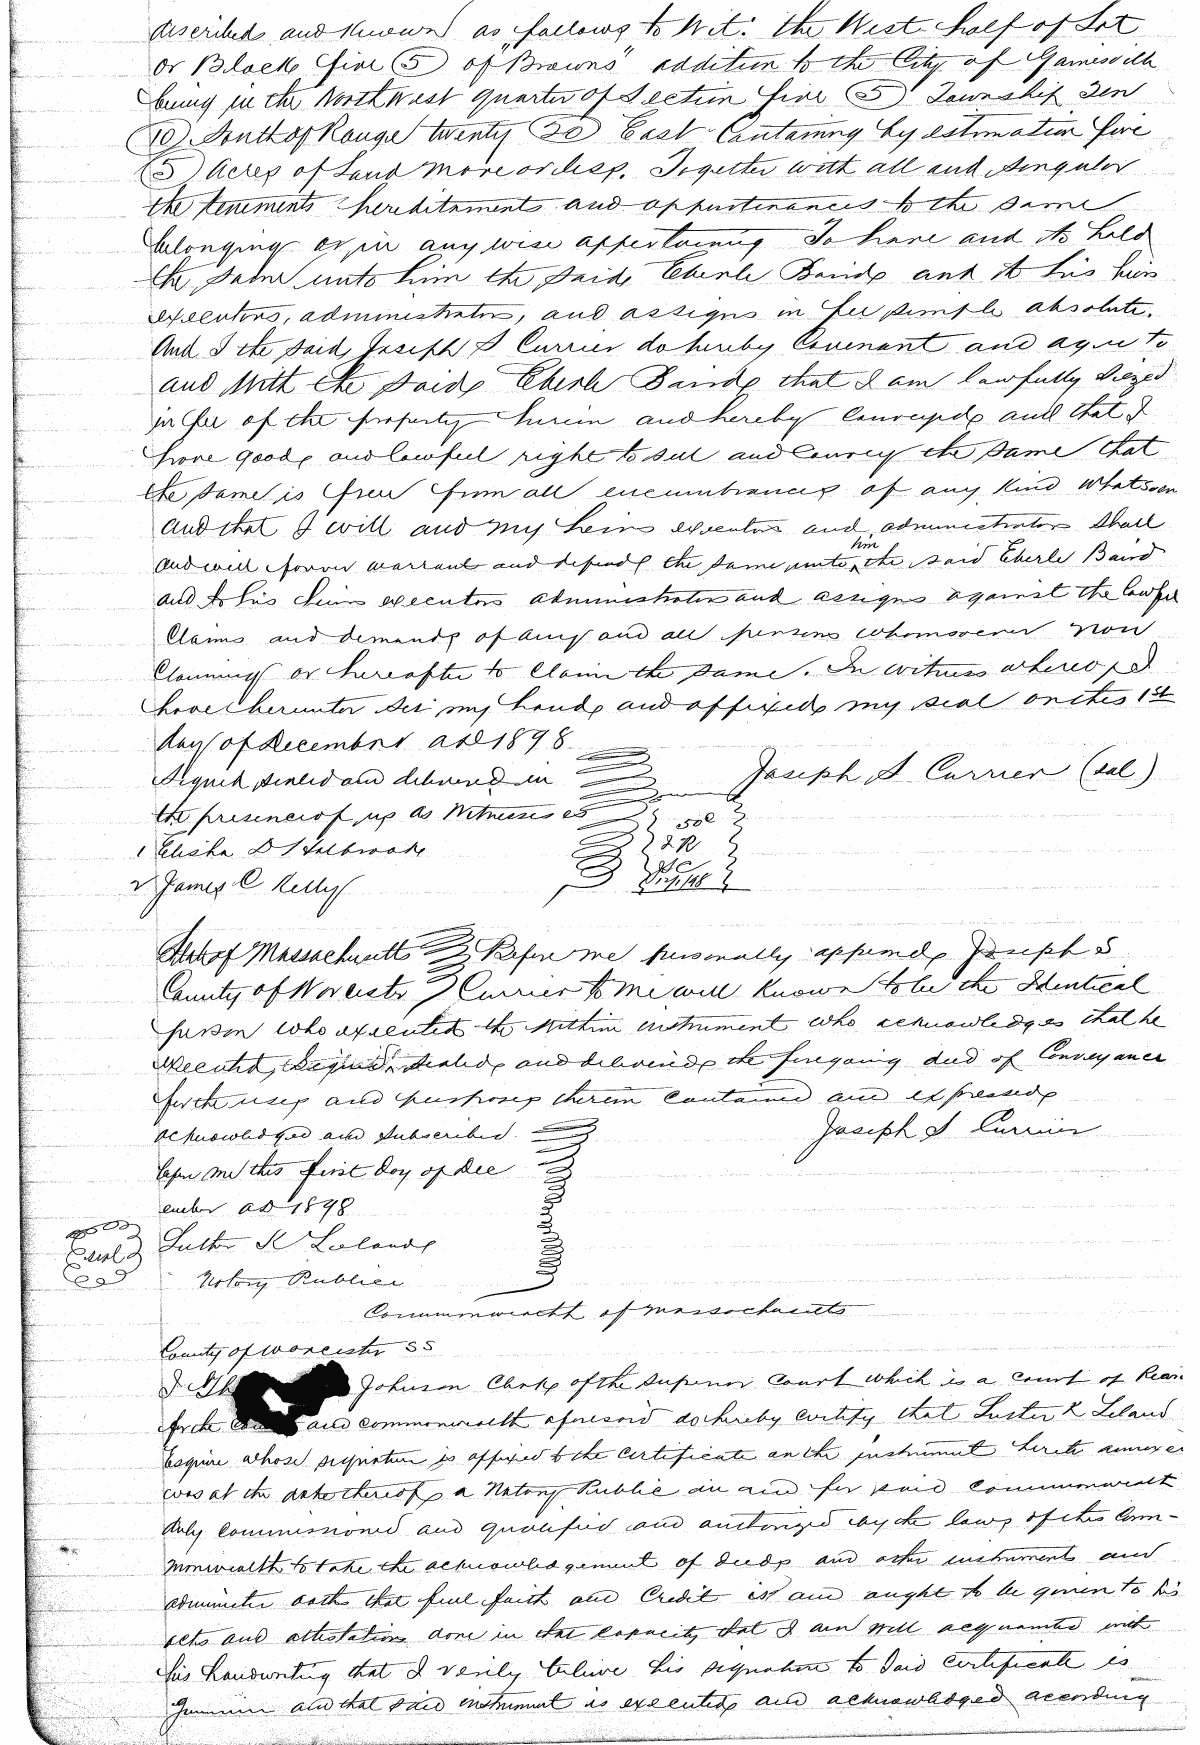 discribed and Known as follows to Wit: the West half of Lot
or Block five (5) of "Browns" addition to the City of Gainesville
being in the North West quarter of Section five (5) Township Ten
(10) South of Range twenty (20) East Containing by estimation five
(5) Acres of Land more or less. Together with all and singular
the tenements hereditaments and appurtenances to the same
belonging or in any wise appertaining To have and to hold
the same unto him the said Eberle Baird and to his heirs
executors, administrators, and assigns in fee simple absolute.
And I the said Joseph S Currier do hereby Covenant and agree to
and With the said Eberle Baird that I am lawfully siezed
in fee of the property herein and hereby Conveyed and that I
have good and lawful right to sell and Convey the same that
the same is free from all encumbrances of any Kind Whatsoever
and that I will and my heirs executors and administrators shall
and will forever warrant and defend the same unto him the said Eberle Baird
and to his heirs executors administrators and assigns against the lawful
Claims and demands of any and all persons whomsoever now
Claiming or hereafter to Claim the same. In witness whereof I
have herunter set my hand and affixed my seal on this 1st
day of December AD 1898
Signed, sealed and delivered in Joseph S Currier (seal)
the presence of us as Witnesses 50c
1 Elisha D Holbrook I R
2 James C Kelly
State of Massachusetts Before me personally appeared Joseph S
County of Worcister Currier to me well Known to be the Identical
person who executed the within instrument who acknowledges that he
Executed, Signed, sealed and delivered the foregoing deed of Conveyance
for the uses and purposes therein contained and expressed
acknowledged and subscribed Joseph S Currier
before me this first day of Dec
ember AD 1898
seal Luther K Leland
Notary Public
Commonwealth of Massachusetts
County of Worcister SS
I Johnson Clerk of the superior court which is a court of Record
for the and commonwealth aforesaid do hereby certify that Luther K Leland
Esquire whose signature is affixed to the certificate on the instrument hereto annexed
was at the date thereof a Notary Public in and for said commonwealth
duly commissioned and qualified and authorized by the laws of this Com-
monwealth to take the acknowledgement of deeds and other instruments and
administer oaths that full faith and Credit is and aught to be given to his
acts and attestations done in that capacity that I am well acquainted with
his handwriting that I verily believe his signature to said certificate is
Genuine and that said instrument is executed and acknowledged according